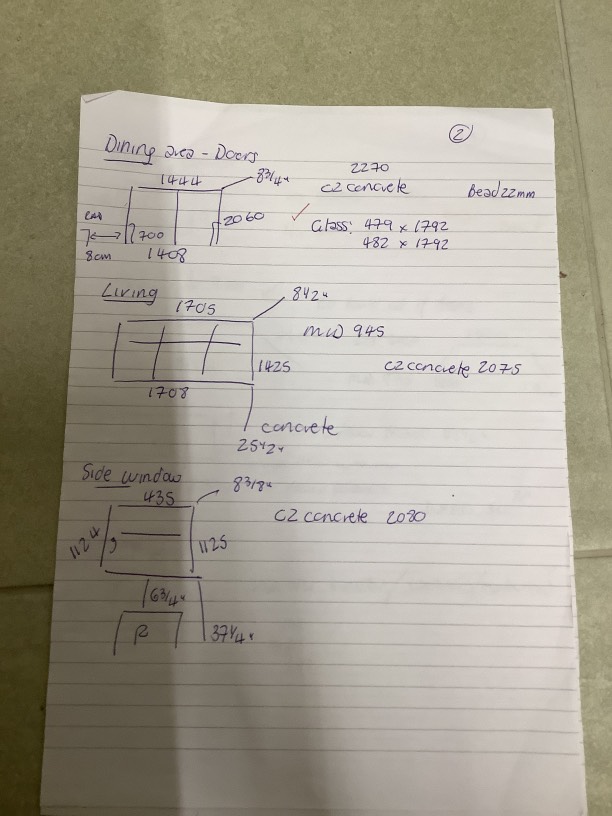 2
Dining area - Doors
1444
8 3/4"
2270
C2 concrete
Bead 22mm
2060
Glass: 479 x 1792
482 x 1792
700
8cm
1408
Living
1705
8 1/2"
MW 945
1425
C2 concrete 2075
1708
concrete
25 1/2"
Side window
435
8 3/8"
C2 concrete 2080
1124
1125
6 3/4"
R
37 1/4"